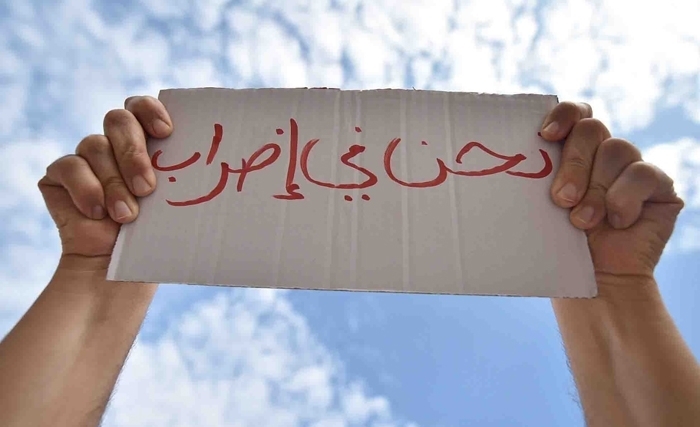 نحن في إضراب